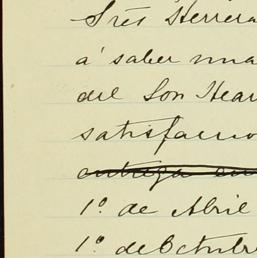 Sres Herrera
á saber una
del Son Hear
satisfacc
entrega en
1º de Abril
1º de Octubre